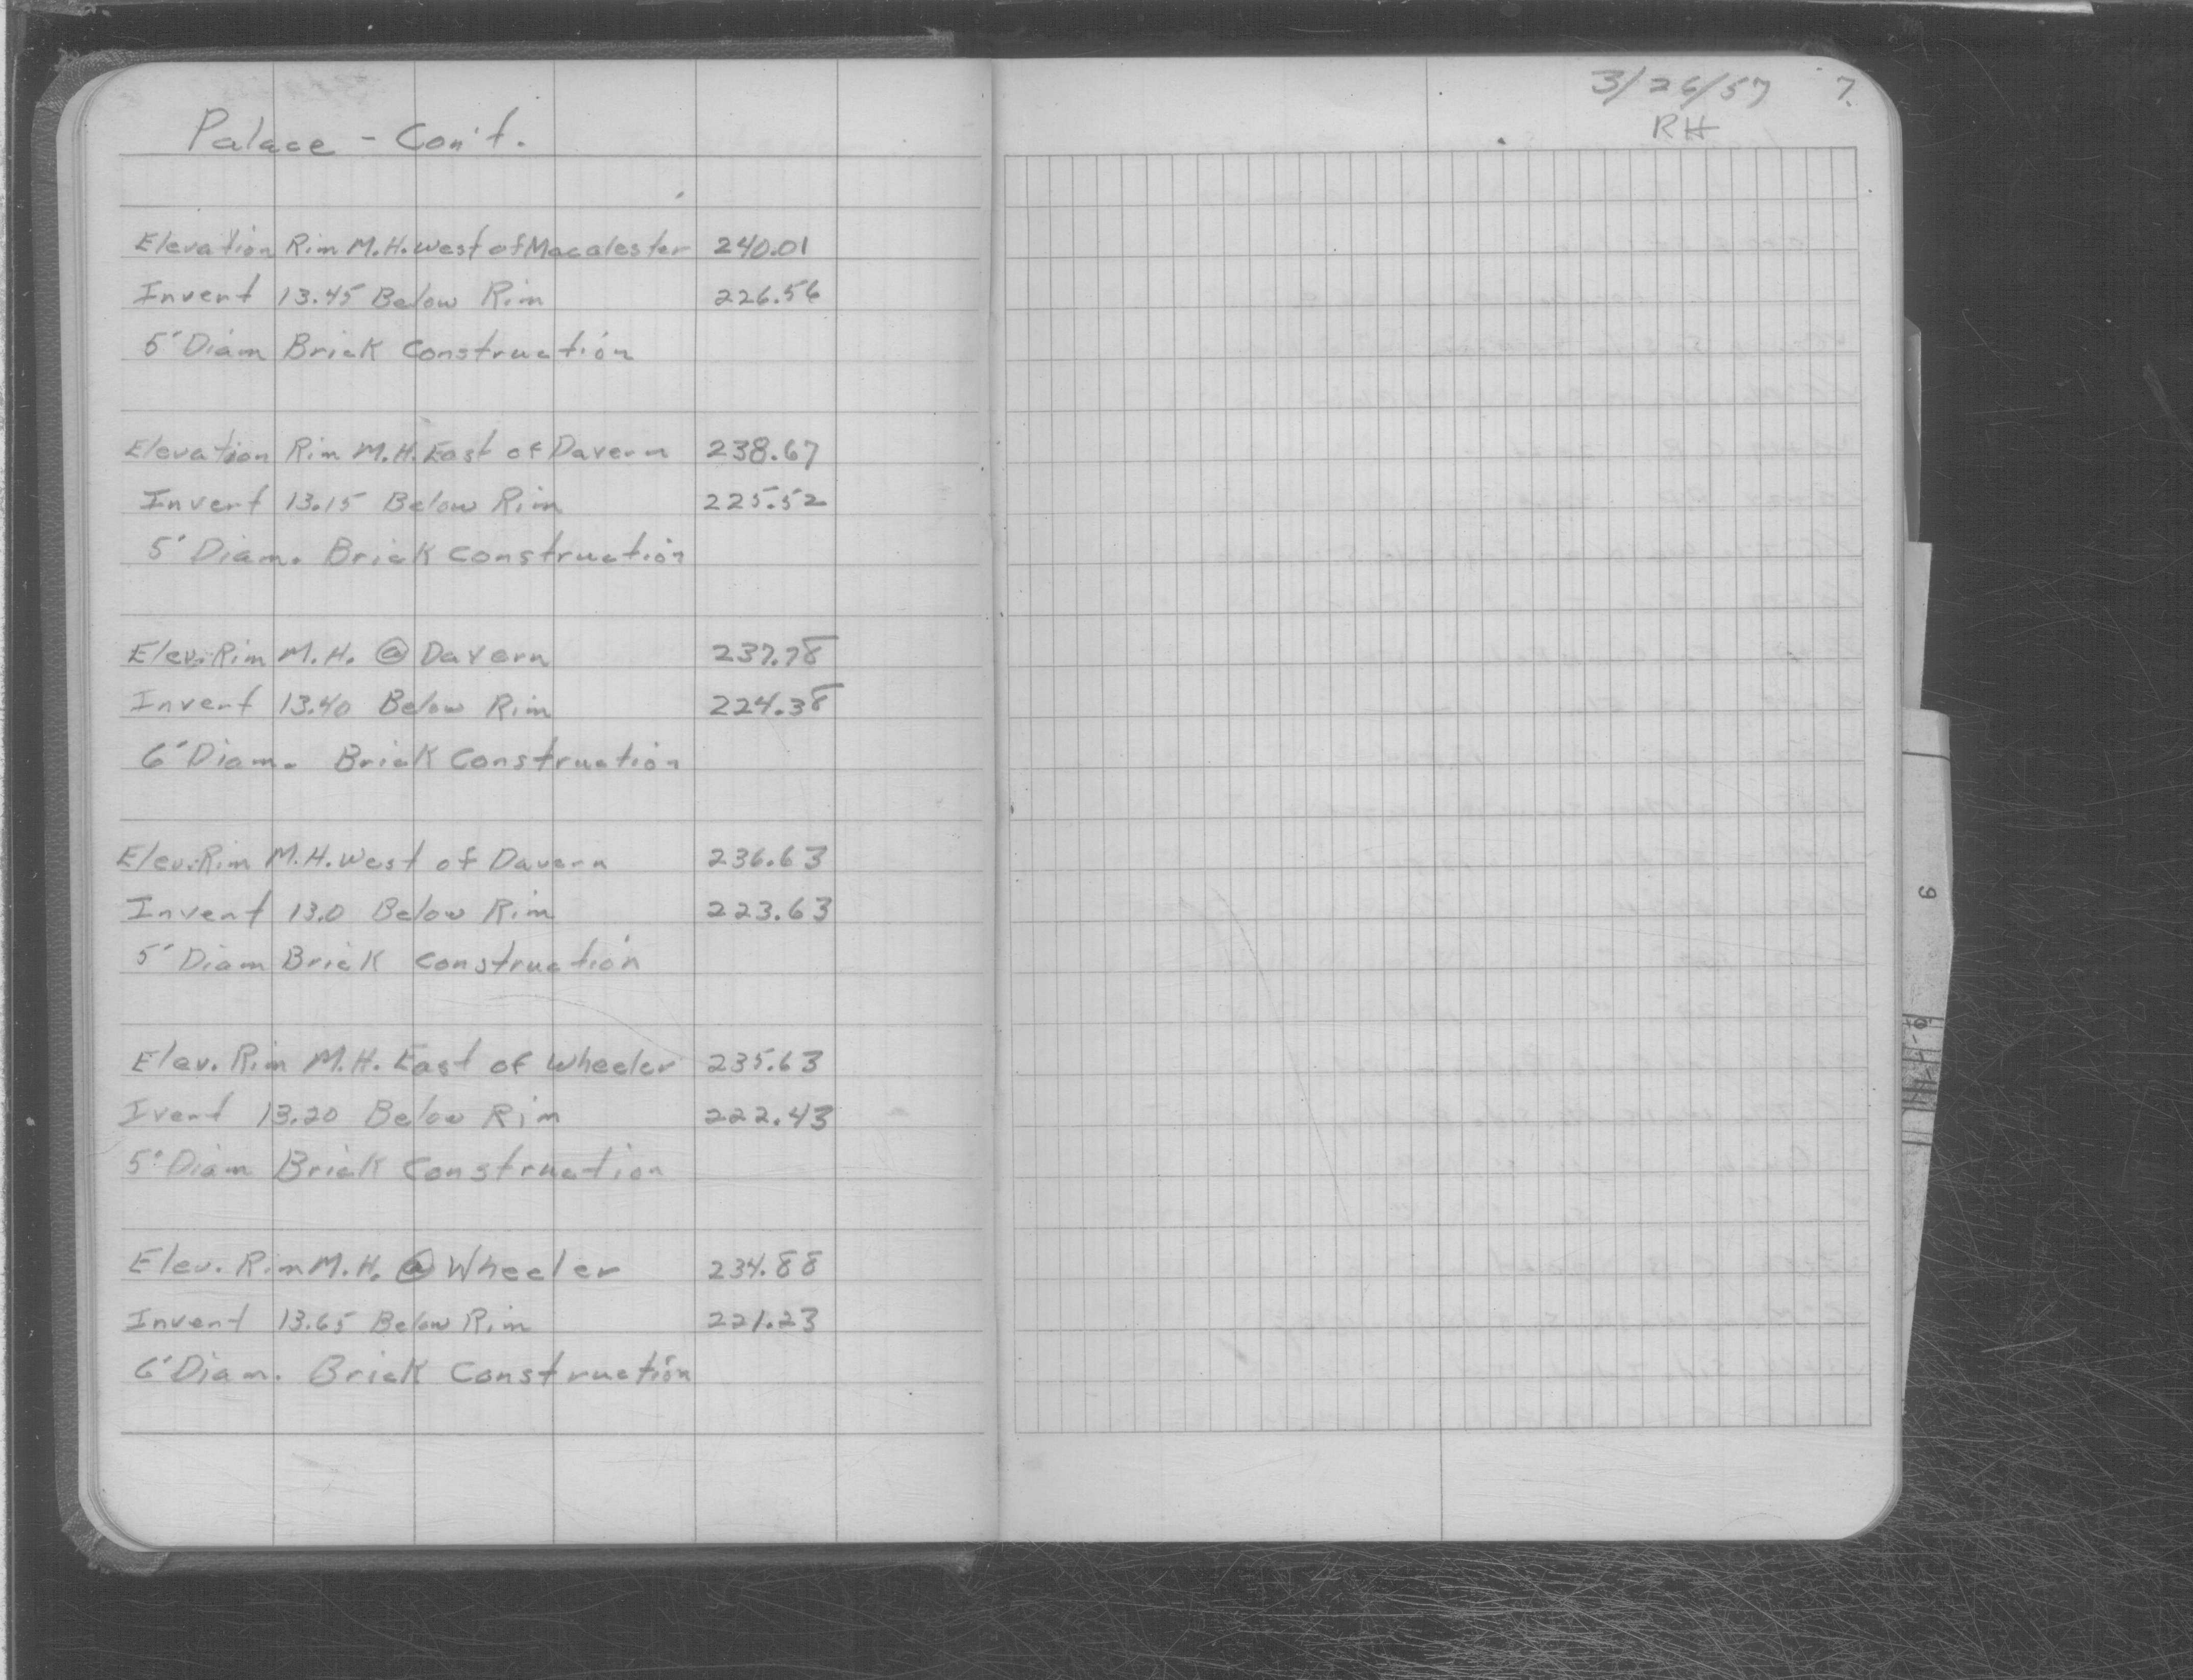 Palace - Con't.
Elevation Rim M.H. West of Macalester 240.01
Invert 13.45 Below Rim 226.56
5' Diam Brick Construction
Elevation Rim M.H. East of Davern 238.67
Invert 13.15 Below Rim 225.52
5' Diam. Brick Construction
Elev. Rim M.H. @ Davern 237.78
Invert 13.40 Below Rim 224.38
6' Diam. Brick Construction
Elev. Rim M.H. West of Davern 236.63
Invert 13.0 Below Rim 223.63
5' Diam Brick Construction
Elev. Rim M.H. East of Wheeler 235.63
Ivert 13.20 Below Rim 222.43
5' Diam Brick Construction
Elev. Rim M.H. @ Wheeler 234.88
Invert 13.65 Below Rim 221.23
6' Diam. Brick Construction
3/26/57 7.
RH